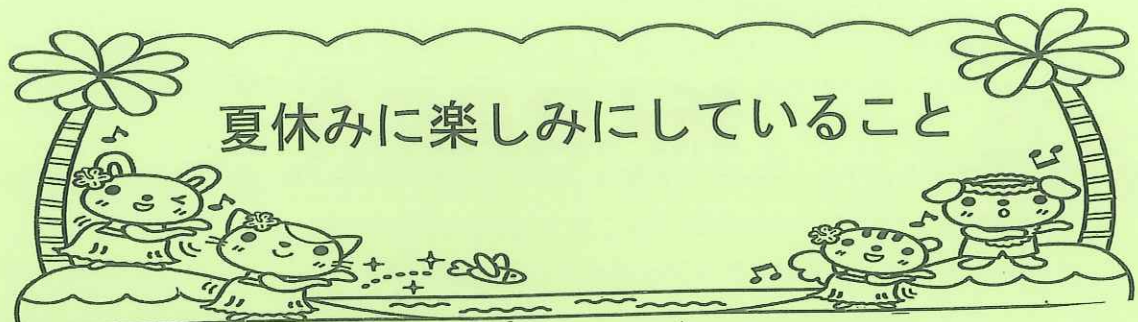 夏休みに楽しみにしていること